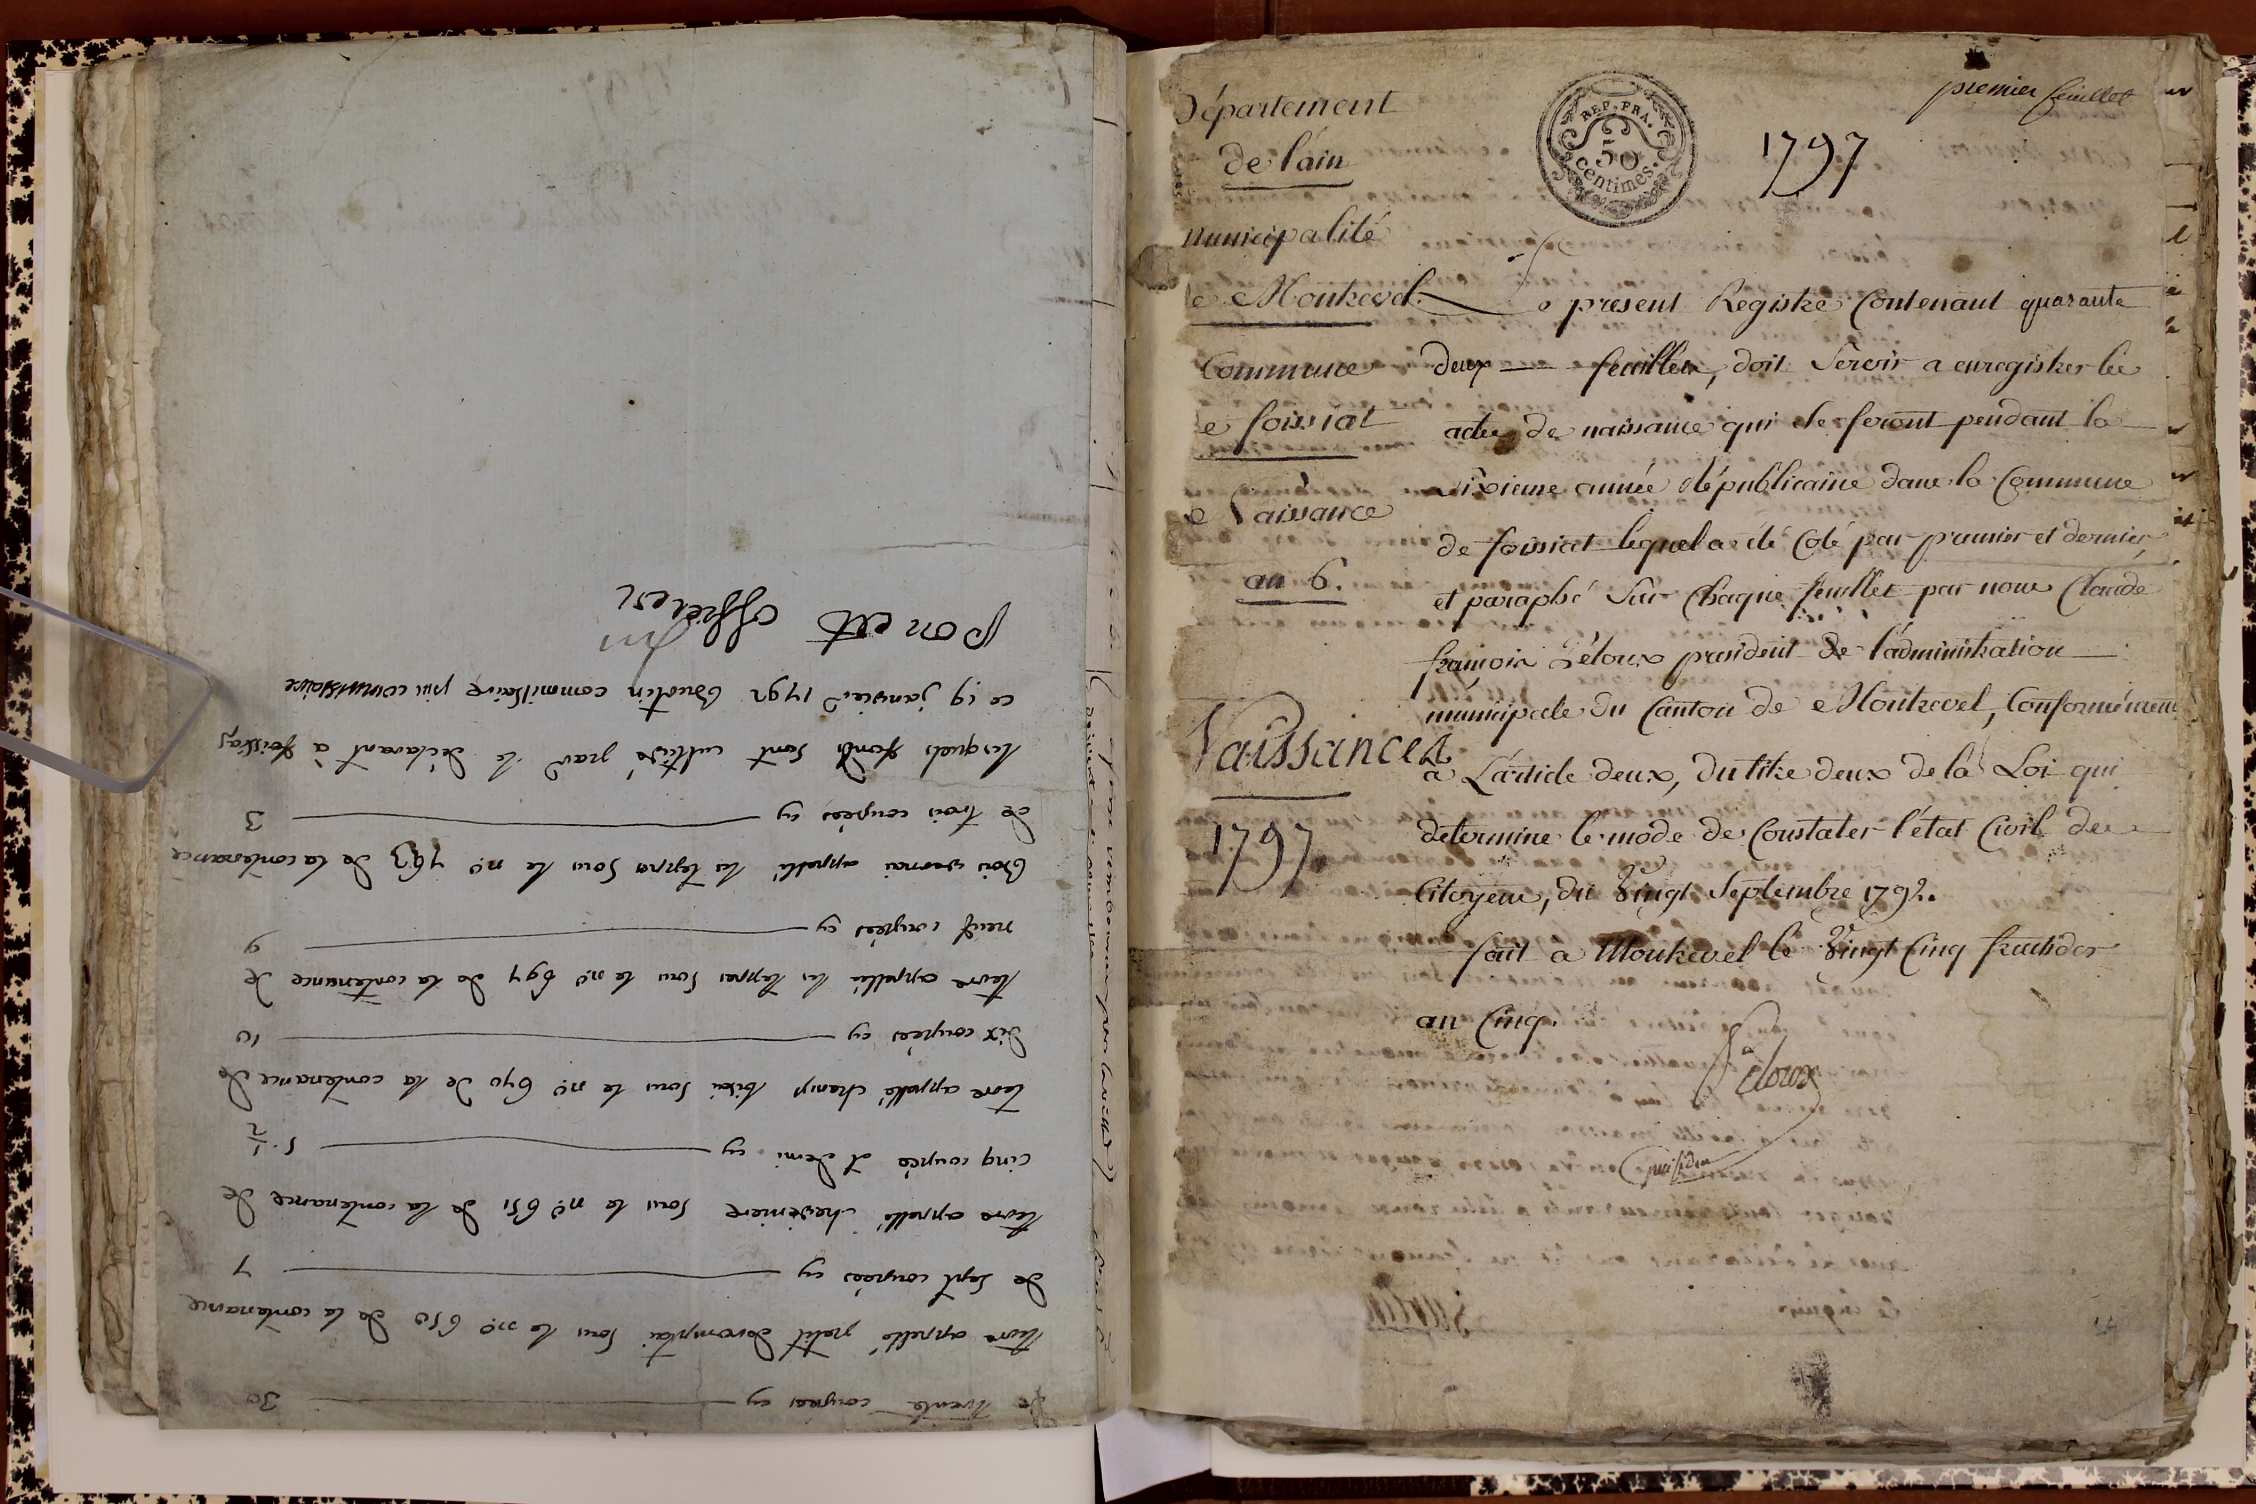 De trente coupées cy 30
terre appellé petit sous le no. 650 de la contenance
de sept coupées cy 7
terre appellé cheneviere sous le no. 651 de la contenance de
cinq coupées et demi cy 5 1/2
terre appellé champ sous le no. 690 de la contenance de
dix coupées cy 10
terre appellée les teppes sous le no. 697 de la contenance de
neuf coupées cy 9
Bois appellé les teppes sous le no. 793 de la contenance
de trois coupées cy 3
lesquels fonds sont cultivé par le déclarant à foissiaz
ce 19 janvier 1792 commissaire commissaire
poncet officier
premier feuillet
Département
de l'ain
1797
REP. FRA.
50
centimes.
municipalité
e Montrevel
Commune
e foissiat
Naissance
an 6.
Naissances
1797
Le present Registre Contenant quarante
deux feuillets, doit Servir a enregistrer les
actes de naissance qui se feront pendant la
sixieme année Républicaine dans la Commune
de foissiat lequel a été Coté par premier et dernier
et paraphé Sur Chaque feuillet par nous Claude
françois Péloux president de l'administration
municipale du Canton de Montrevel, Conformément
à L'article deux, du titre deux de la Loi qui
determine le mode de Constater l'état Civil des
Citoyens, du Vingt Septembre 1792.
fait a Montrevel le Vingt Cinq fructidor
an Cinq.
Péloux
president